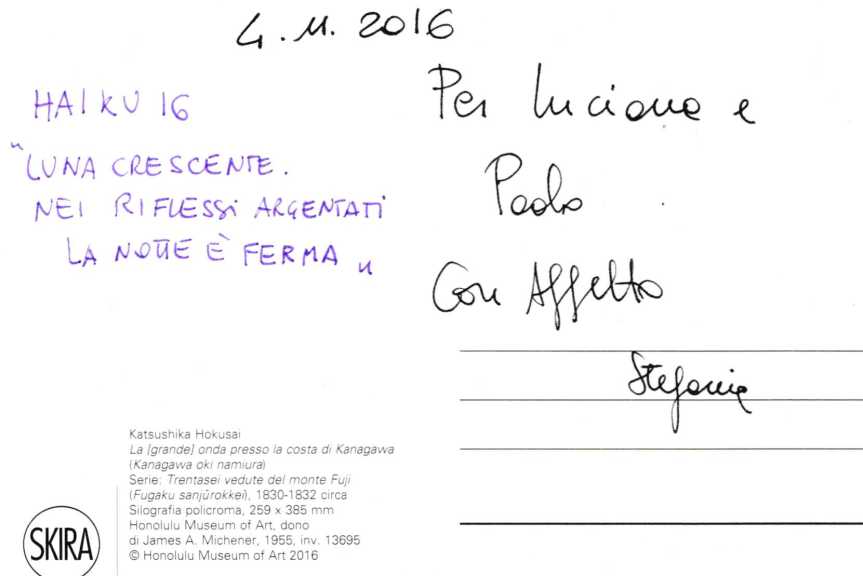 4.11.2016
HAIKU 16
"LUNA CRESCENTE.
NEI RIFLESSi ARGENTATi
LA NOTTE È FERMA"
Per Luciana e
Paolo
Con Affetto
Stefania
Katsushika Hokusai
La [grande] onda presso la costa di Kanagawa
(Kanagawa oki namiura)
Serie: Trentasei vedute del monte Fuji
(Fugaku sanjūrokkei), 1830-1832 circa
Silografia policroma, 259 x 385 mm
Honolulu Museum of Art, dono
di James A. Michener, 1955, inv. 13695
© Honolulu Museum of Art 2016
SKIRA